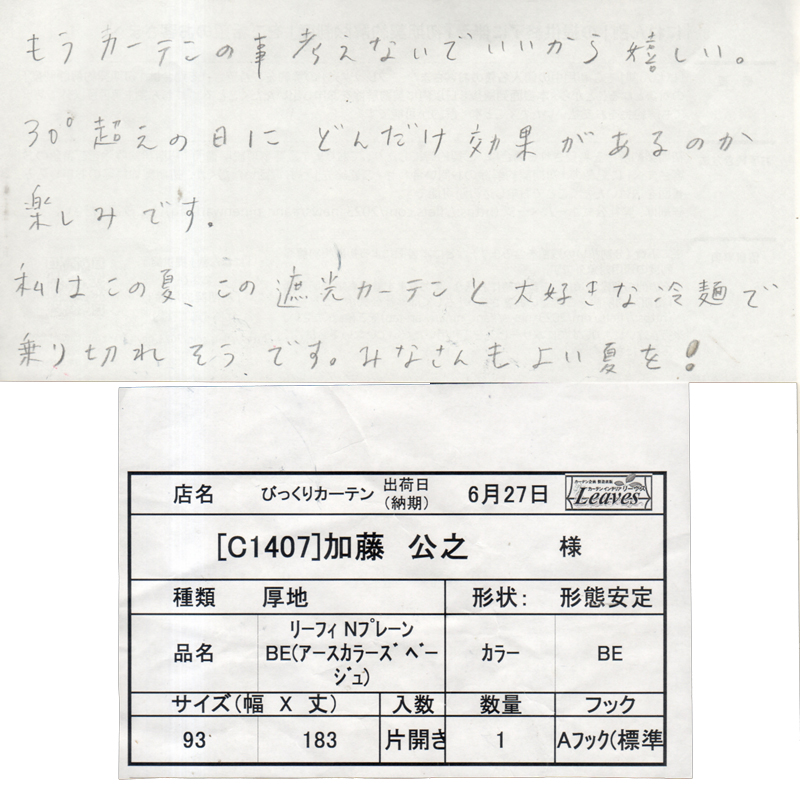 もうカーテンの事考えないでいいから嬉しい。
30°超えの日にどんだけ効果があるのか
楽しみです。
私はこの夏、この遮光カーテンと大好きな冷麺で
乗り切れそうです。みなさんも、よい夏を!
店名 びっくりカーテン 出荷日(納期) 6月27日 Leaves
[C1407]加藤 公之 様
種類 厚地 形状: 形態安定
品名 リーフィ Nプレーン BE(アースカラーズ ベージュ) カラー BE
サイズ(幅 X 丈) 入数 数量 フック
93 183 片開き 1 Aフック(標準